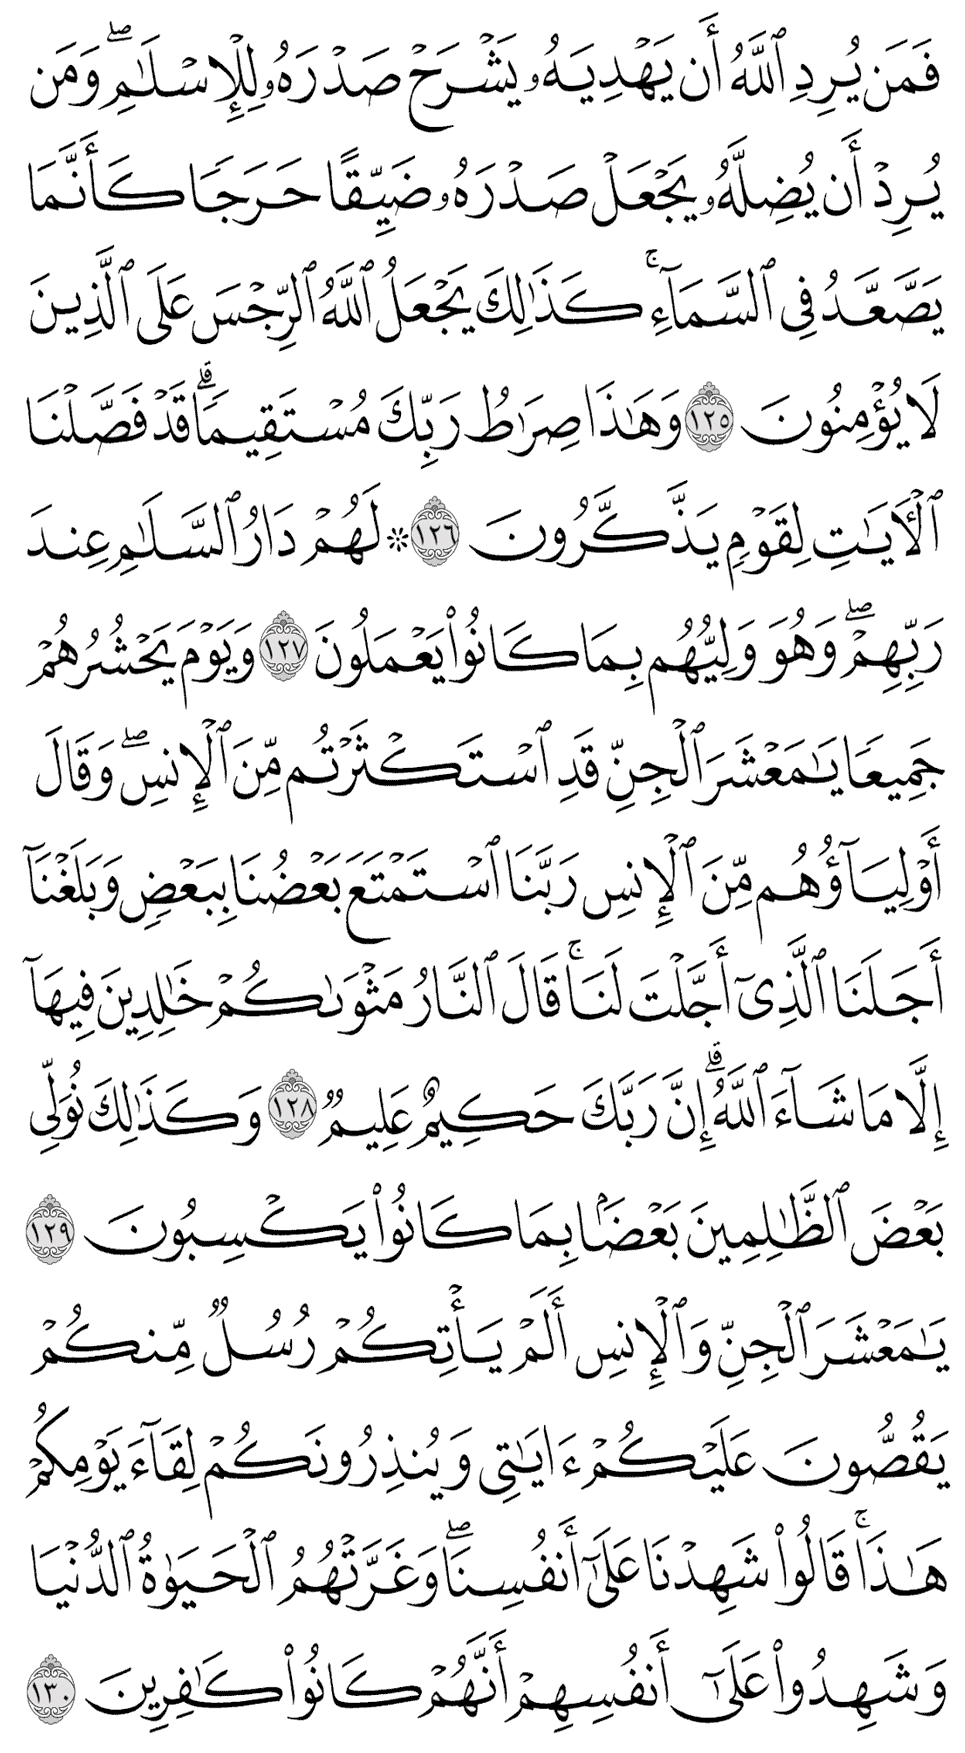 فَمَن يُرِدِ ٱللَّهُ أَن يَهْدِيَهُۥ يَشْرَحْ صَدْرَهُۥ لِلْإِسْلَـٰمِ ۖ وَمَن
يُرِدْ أَن يُضِلَّهُۥ يَجْعَلْ صَدْرَهُۥ ضَيِّقًا حَرَجًا كَأَنَّمَا
يَصَّعَّدُ فِى ٱلسَّمَآءِ ۚ كَذَٰلِكَ يَجْعَلُ ٱللَّهُ ٱلرِّجْسَ عَلَى ٱلَّذِينَ
لَا يُؤْمِنُونَ ١٢٥ وَهَـٰذَا صِرَٰطُ رَبِّكَ مُسْتَقِيمًا ۗ قَدْ فَصَّلْنَا
ٱلْـَٔايَـٰتِ لِقَوْمٍ يَذَّكَّرُونَ ١٢٦ ۞ لَهُمْ دَارُ ٱلسَّلَـٰمِ عِندَ
رَبِّهِمْ ۖ وَهُوَ وَلِيُّهُم بِمَا كَانُوا۟ يَعْمَلُونَ ١٢٧ وَيَوْمَ يَحْشُرُهُمْ
جَمِيعًا يَـٰمَعْشَرَ ٱلْجِنِّ قَدِ ٱسْتَكْثَرْتُم مِّنَ ٱلْإِنسِ ۖ وَقَالَ
أَوْلِيَآؤُهُم مِّنَ ٱلْإِنسِ رَبَّنَا ٱسْتَمْتَعَ بَعْضُنَا بِبَعْضٍ وَبَلَغْنَآ
أَجَلَنَا ٱلَّذِىٓ أَجَّلْتَ لَنَا ۚ قَالَ ٱلنَّارُ مَثْوَىٰكُمْ خَـٰلِدِينَ فِيهَآ
إِلَّا مَا شَآءَ ٱللَّهُ ۗ إِنَّ رَبَّكَ حَكِيمٌ عَلِيمٌ ١٢٨ وَكَذَٰلِكَ نُوَلِّى
بَعْضَ ٱلظَّـٰلِمِينَ بَعْضًۢا بِمَا كَانُوا۟ يَكْسِبُونَ ١٢٩
يَـٰمَعْشَرَ ٱلْجِنِّ وَٱلْإِنسِ أَلَمْ يَأْتِكُمْ رُسُلٌ مِّنكُمْ
يَقُصُّونَ عَلَيْكُمْ ءَايَـٰتِى وَيُنذِرُونَكُمْ لِقَآءَ يَوْمِكُمْ
هَـٰذَا ۚ قَالُوا۟ شَهِدْنَا عَلَىٰٓ أَنفُسِنَا ۖ وَغَرَّتْهُمُ ٱلْحَيَوٰةُ ٱلدُّنْيَا
وَشَهِدُوا۟ عَلَىٰٓ أَنفُسِهِمْ أَنَّهُمْ كَانُوا۟ كَـٰفِرِينَ ١٣٠